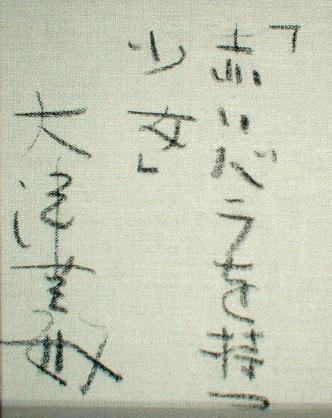 「赤いバラを持つ
少女」
大津英敏